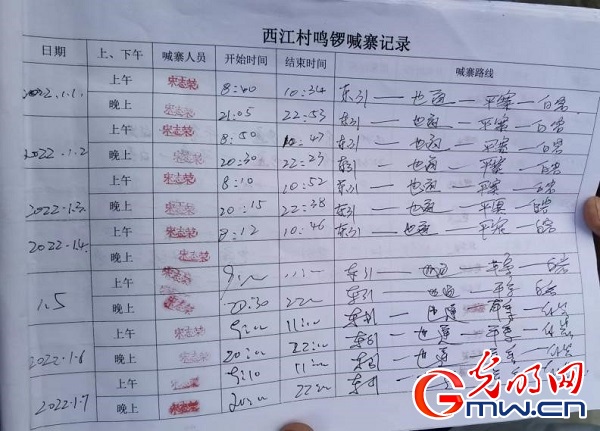 西江村鸣锣喊寨记录
日期 上、下午 喊寨人员 开始时间 结束时间 喊寨路线
2022.1.1 上午 宋志荣 8:40 10:34 东引 — 也通 — 平寨 —
晚上 宋志荣 21:05 22:53 东引 — 也通 — 平寨 —
2022.1.2 上午 宋志荣 8:50 10:47 东引 — 也通 — 平寨 —
晚上 宋志荣 20:30 22:23 东引 — 也通 — 平寨 —
2022.1.3 上午 宋志荣 8:10 10:52 东引 — 也通 — 平寨 —
晚上 宋志荣 20:15 22:38 东引 — 也通 — 平寨 —
2022.1.4 上午 宋志荣 8:12 10:46 东引 — 也通 — 平寨 —
晚上 宋志荣
1.5 上午 宋志荣 9:00 11:00 东引 — 也通 — 平寨 —
晚上 宋志荣 20:30 22:00 东引 — 也通 — 平寨 —
2022.1.6 上午 宋志荣 9:00 11:00 东引 — 也通 — 平寨 —
晚上 宋志荣 20:00 22:00 东引 — 也通 — 平寨 —
2022.1.7 上午 宋志荣 9:10 11:00 东引 — 也通 — 平寨 —
晚上 宋志荣 20:00 22:00 东引 —
光明网
Gmw.cn